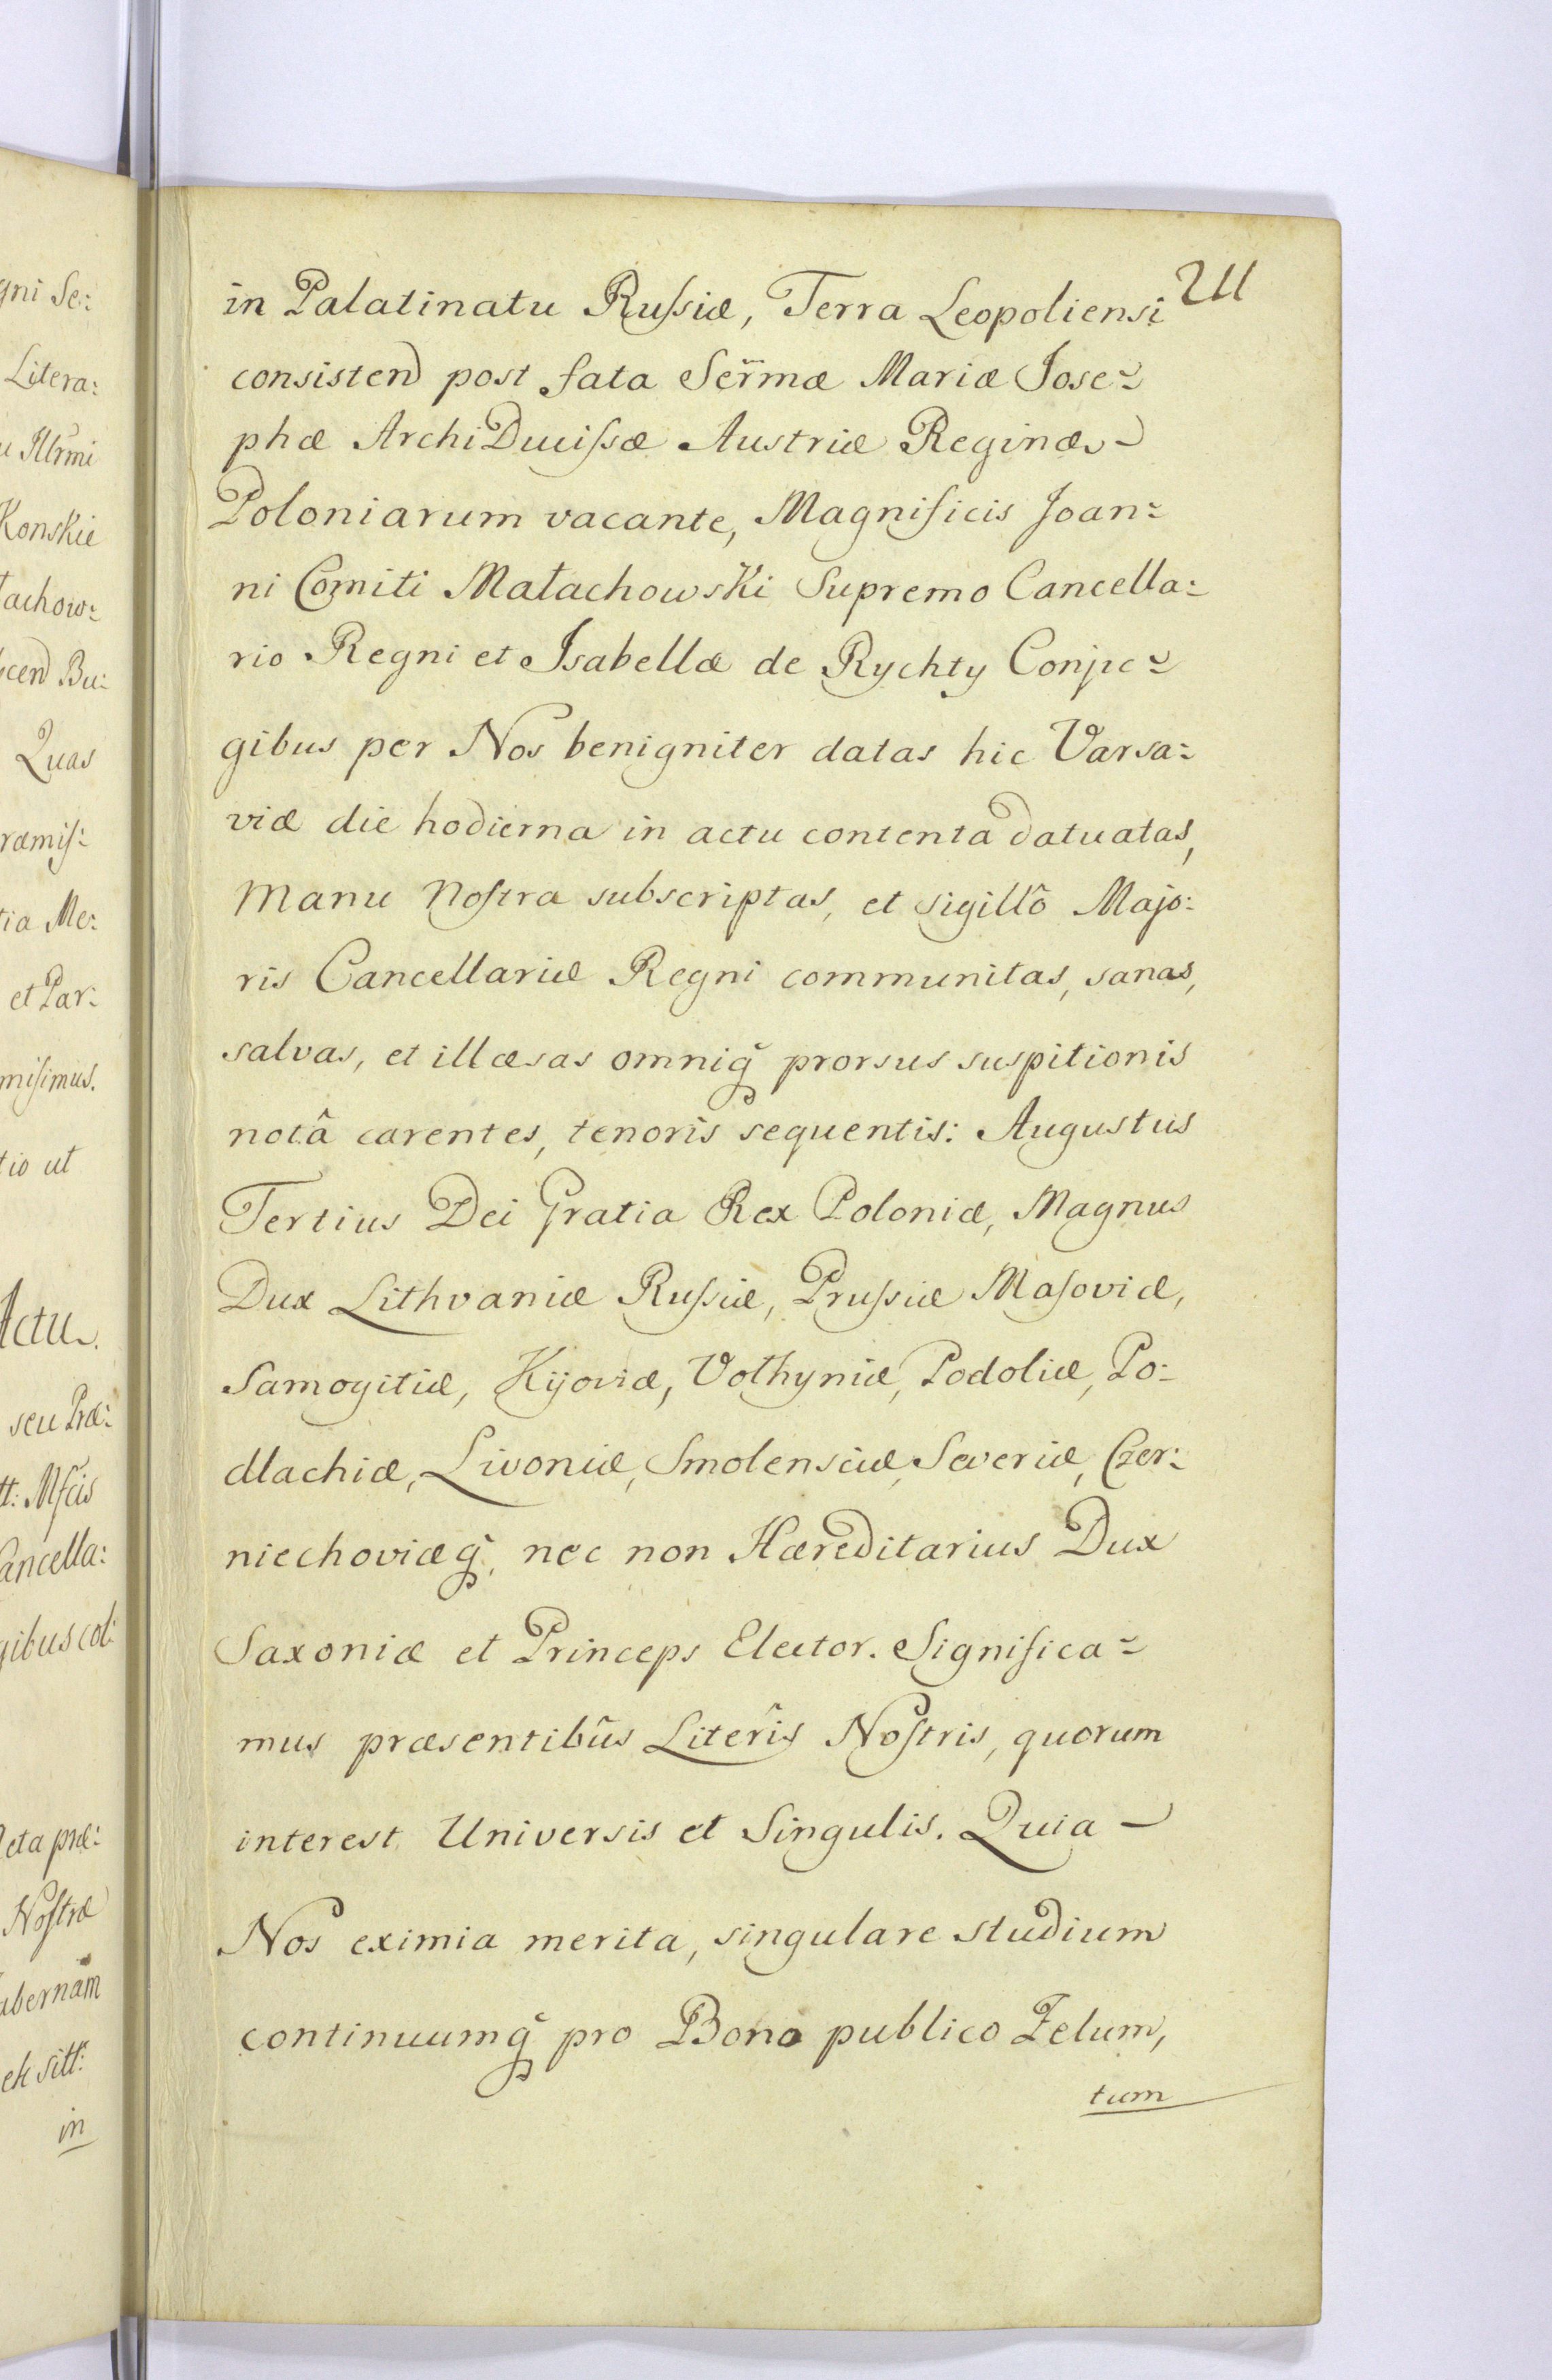 gni Se:
Litera:
u Illrmi
Konskie
łachow:
cend Bu:
Quas
ræmis:
tia Me:
et Par:
misimus.
tio ut
Actu.
seu Præ:
tt: Mfcis
Cancella:
gibus col:
Acta præ:
Nostræ
abernam
ek sitt:
in
in Palatinatu Russiæ, Terra Leopoliensi
consistend post fata Serm̃æ Mariæ Jose=
phæ ArchiDucissæ Austriæ Reginæ
Poloniarum vacante, Magnificis Joan=
ni Comiti Małachowski Supremo Cancella=
rio Regni et Isabellæ de Rychty Conju=
gibus per Nos benigniter datas hic Varsa=
viæ die hodierna in actu contenta datuatas,
Manu Nostra subscriptas, et sigillô Majo:
ris Cancellariæ Regni communitas, sanas,
salvas, et illæsas omniq̃ prorsus suspitionis
notâ carentes, tenoris sequentis: Augustus
Tertius Dei Gratia Rex Poloniæ, Magnus
Dux Lithvaniæ Russiæ, Prussiæ Masoviæ,
Samogitiæ, Kijoviæ, Vołhyniæ, Podoliæ, Po=
dlachiæ, Livoniæ, Smolensciæ, Severiæ, Czer:
niechoviæq̃, nec non Hæreditarius Dux
Saxoniæ et Princeps Elector. Significa=
mus præsentibûs Literîs Nostris, quorum
interest Universis et Singulis. Quia
Nos eximia merita, singulare studium
continuumq̃ pro Bono publico Zelum,
tum